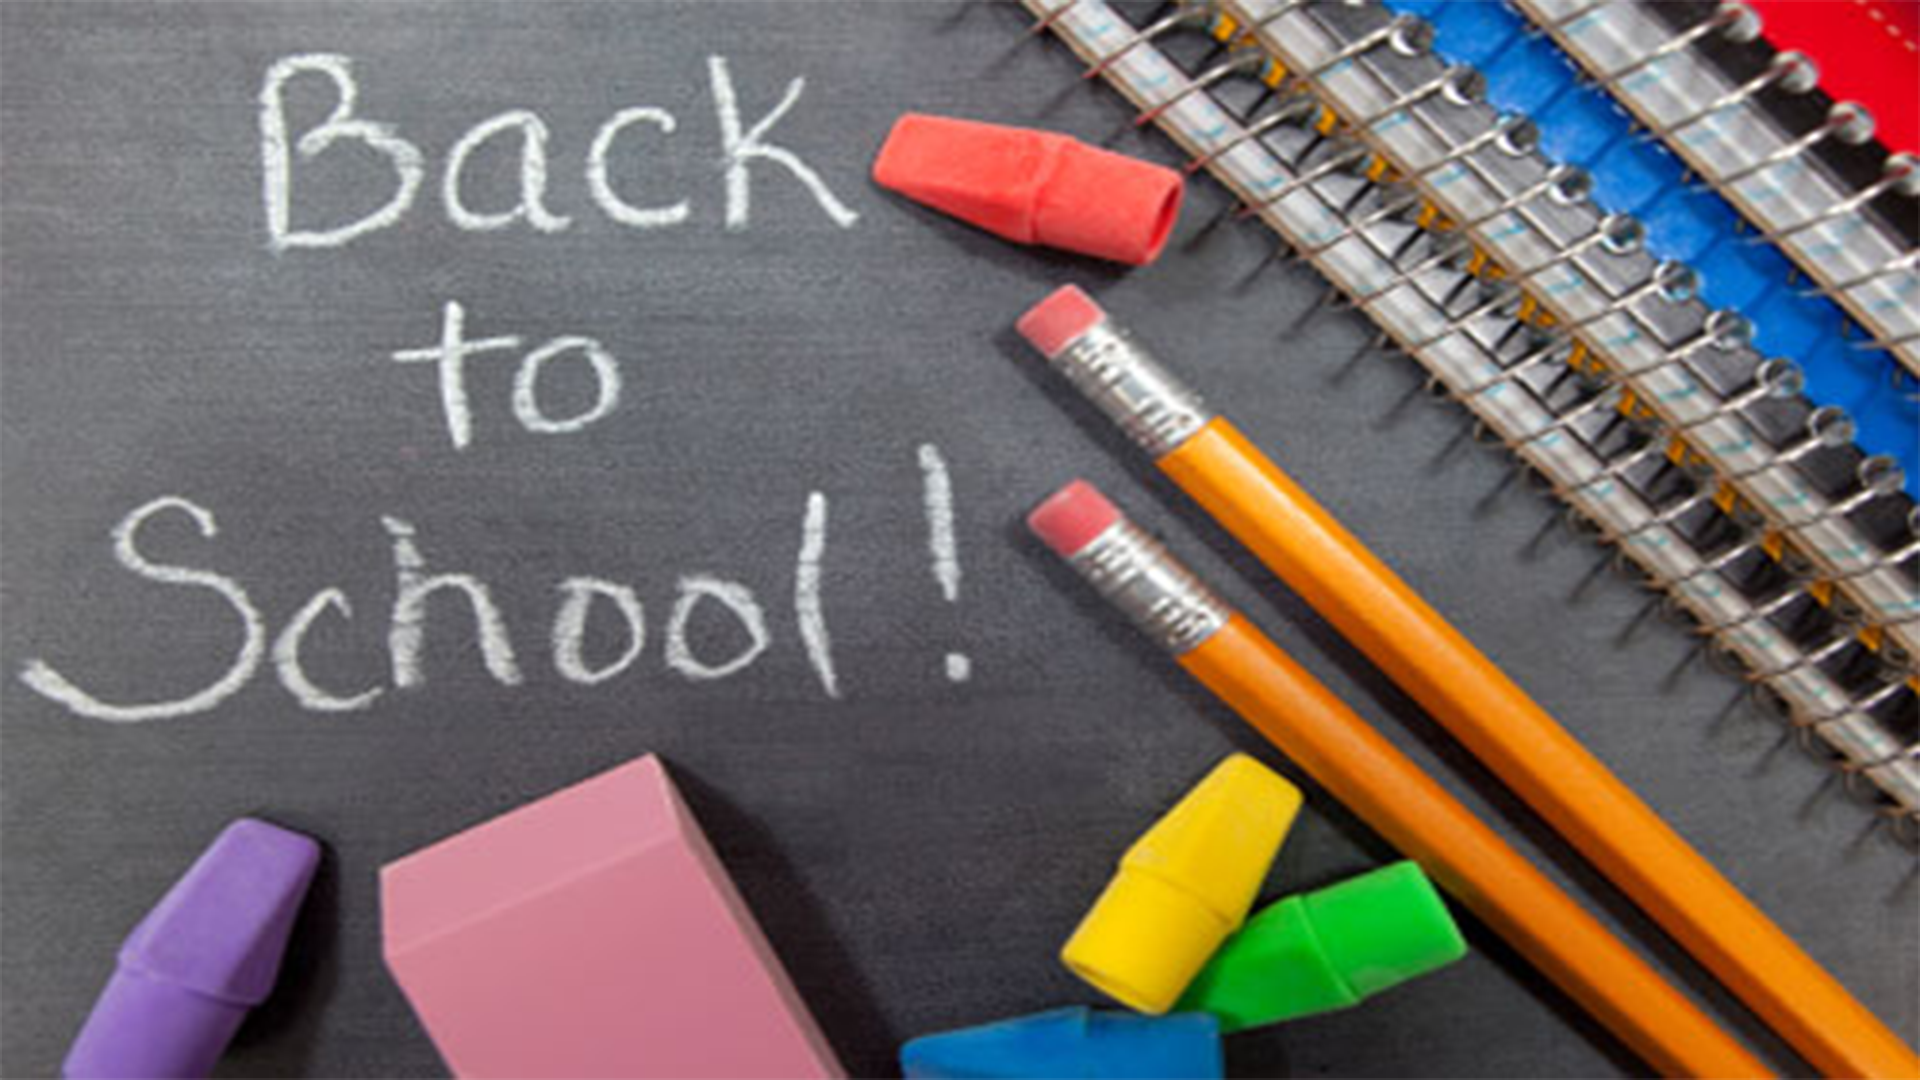 Back
to
School!